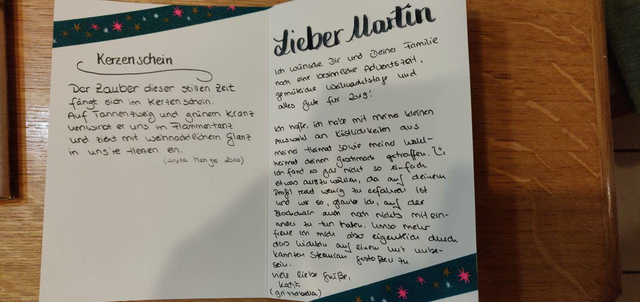 Kerzenschein
Der Zauber dieser stillen Zeit
fängt sich im Kerzenschein.
Auf Tannenzweig und grünem Kranz
verwirbt er uns im Flammentanz
und zieht mit weihnachtlichem Glanz
in uns're Herzen ein.
(Anita Menger 2010)
Lieber Martin
Ich wünsche Dir und Deiner Familie
noch eine besinnliche Adventszeit,
gemütliche Weihnachtstage und
alles Gute für 2019!
Ich hoffe, ich habe mit meiner kleinen
Auswahl an Köstlichkeiten aus
meiner Heimat sowie meiner Wahl-
heimat deinen Geschmack getroffen.
Ich fand es gar nicht so einfach
etwas auszuwählen, da auf deinem
Profil recht wenig zu erfahren ist
und wir so, glaube ich, auf der
Blockchain auch noch nichts mitein-
ander zu tun hatten. Umso mehr
freue ich mich aber eigentlich durch
das Wichteln auf einen mir unbe-
kannten Steemian gestoßen zu
sein.
Viele liebe Grüße,
Katja